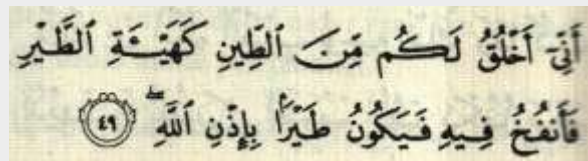 أَنِّىٓ أَخْلُقُ لَكُم مِّنَ ٱلطِّينِ كَهَيْـَٔةِ ٱلطَّيْرِ
فَأَنفُخُ فِيهِ فَيَكُونُ طَيْرًۢا بِإِذْنِ ٱللَّهِۖ ٤٩